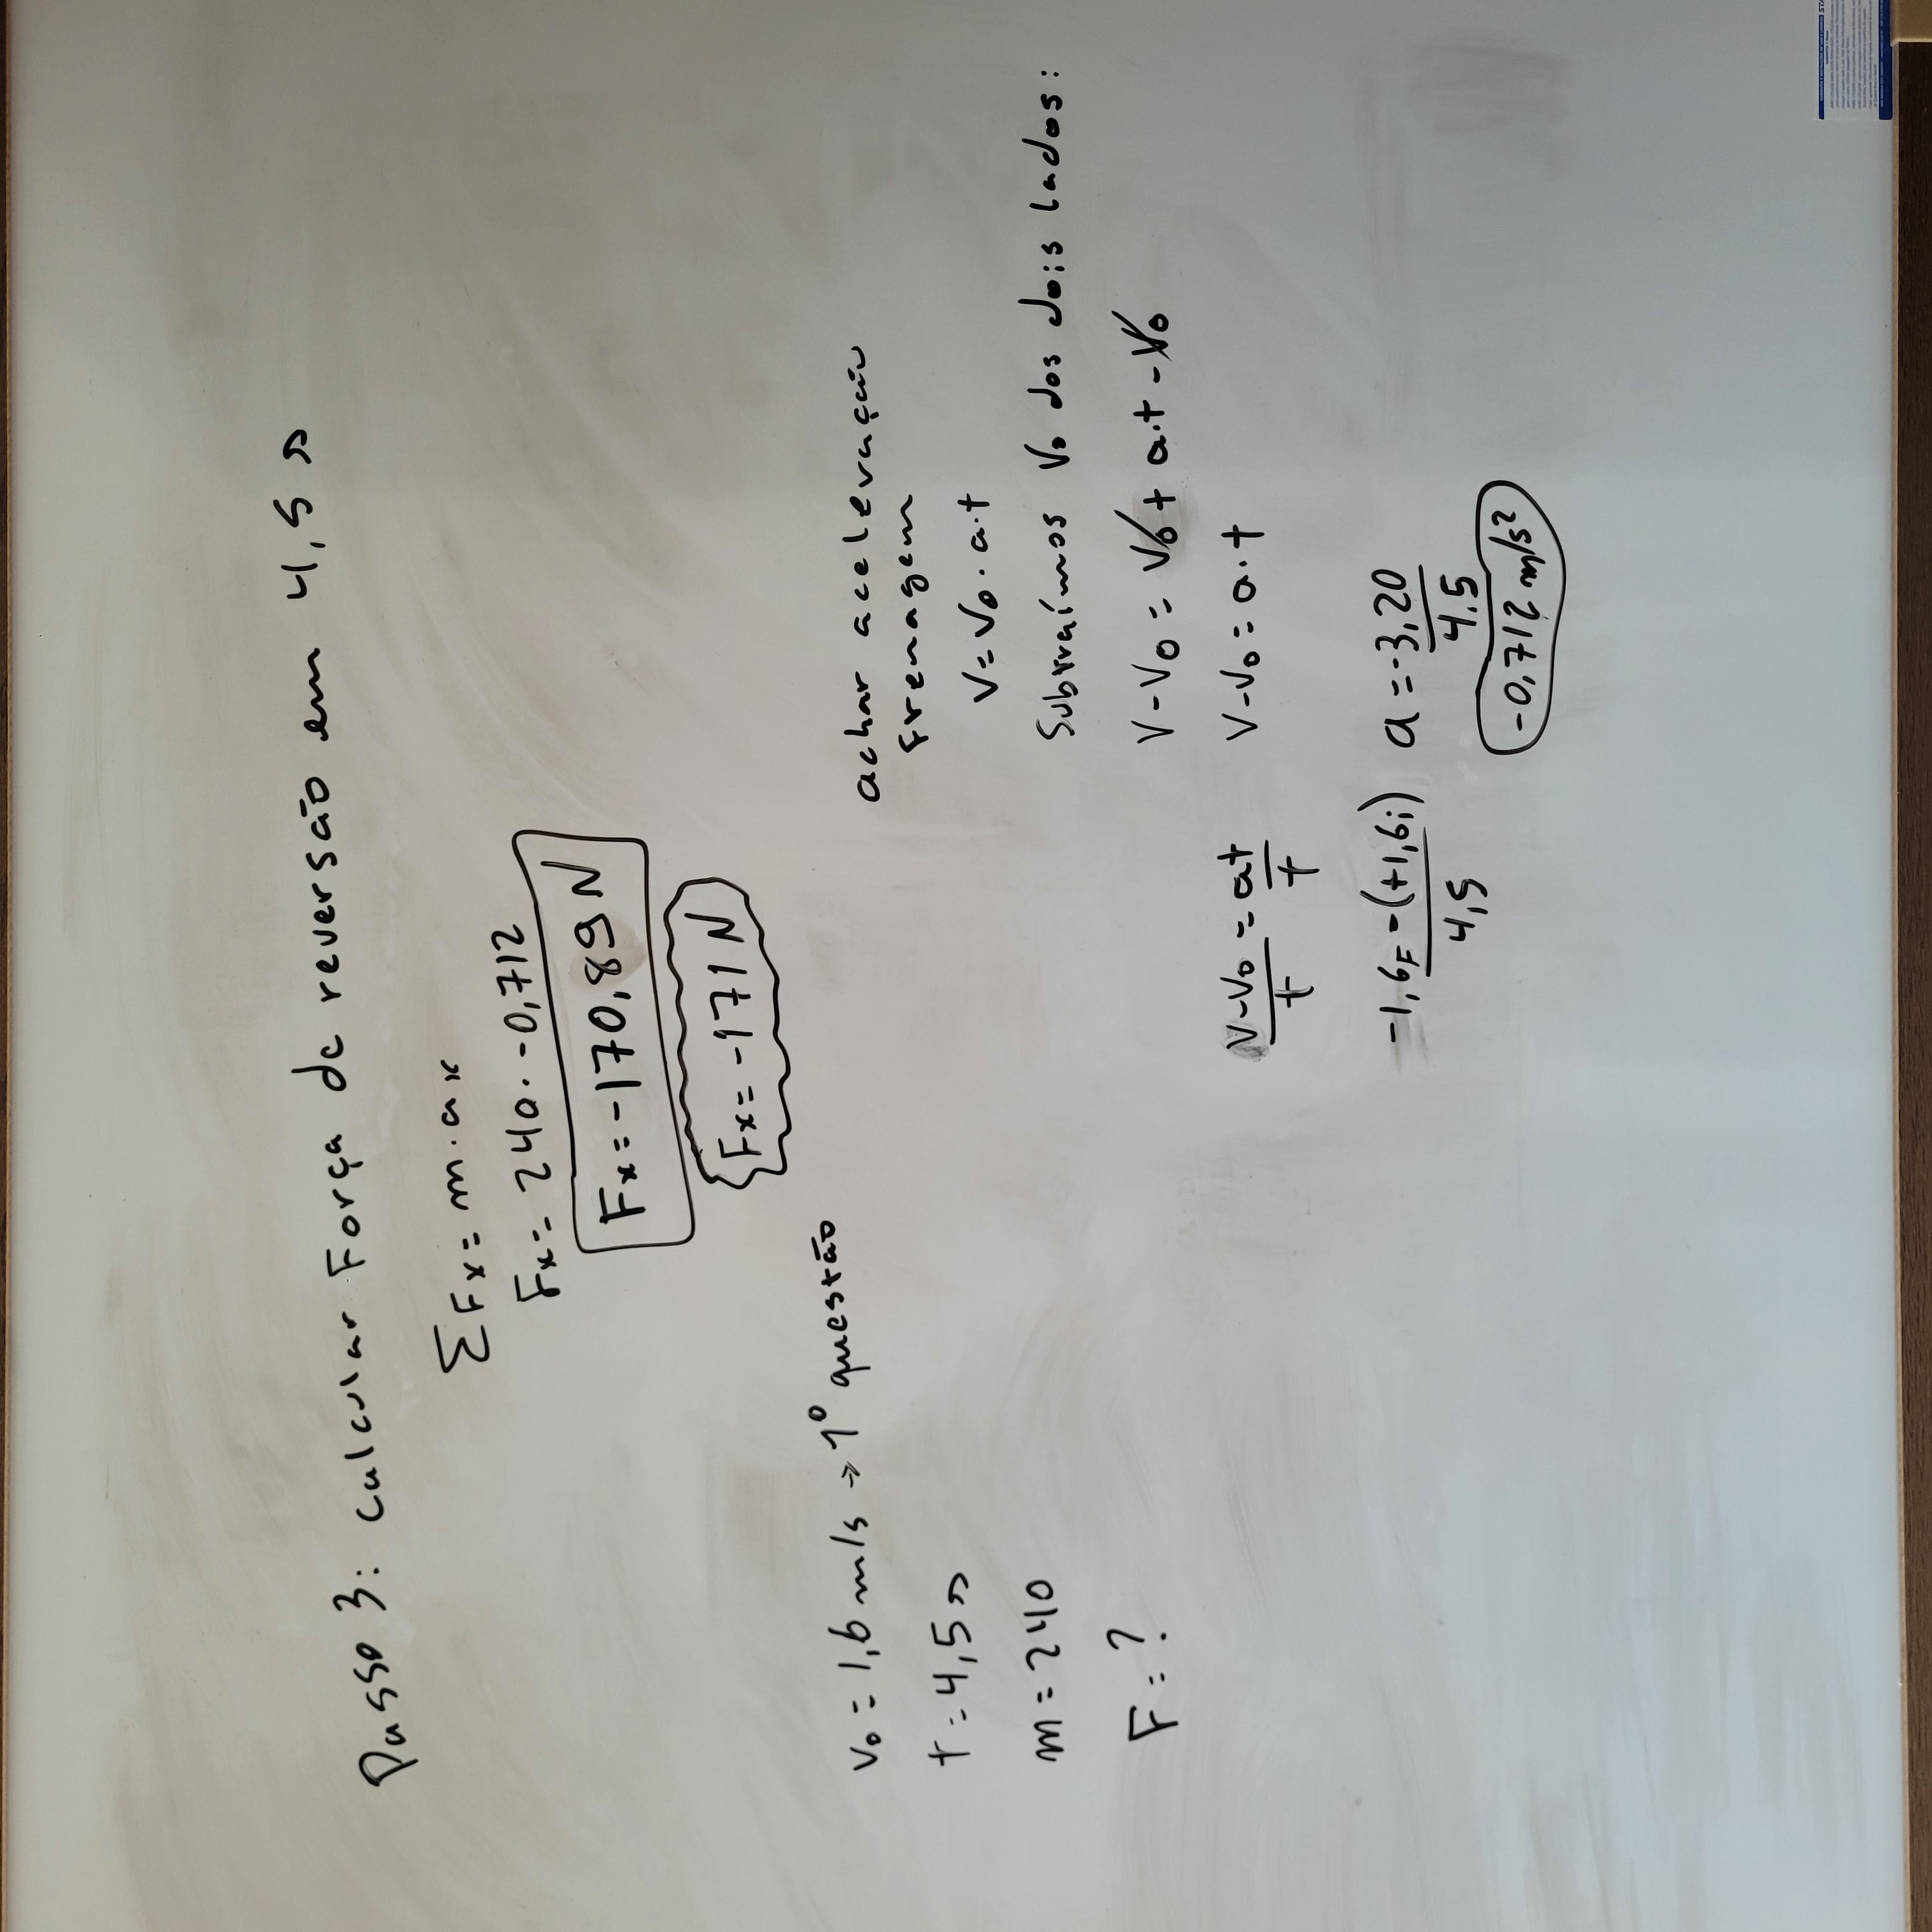 Passo 3: calcular Força de reversão em 4,5 s
∑Fx = m.ax
Fx = 240.-0,712
Fx = -170,89 N
Fx = -171 N
v₀ = 1,6 m/s → 1º questão
t = 4,5 s
m = 240
F = ?
achar acelevação
frenagem
V = V₀.a.t
Subtraímos V₀ dos dois lados:
V - V₀ = V₀ + a.t - V₀
V - V₀ = a.t
V - V₀ / t = at / t
-1,6F - (+1,6i) / 4,5
a = -3,20 / 4,5
-0,712 m/s²